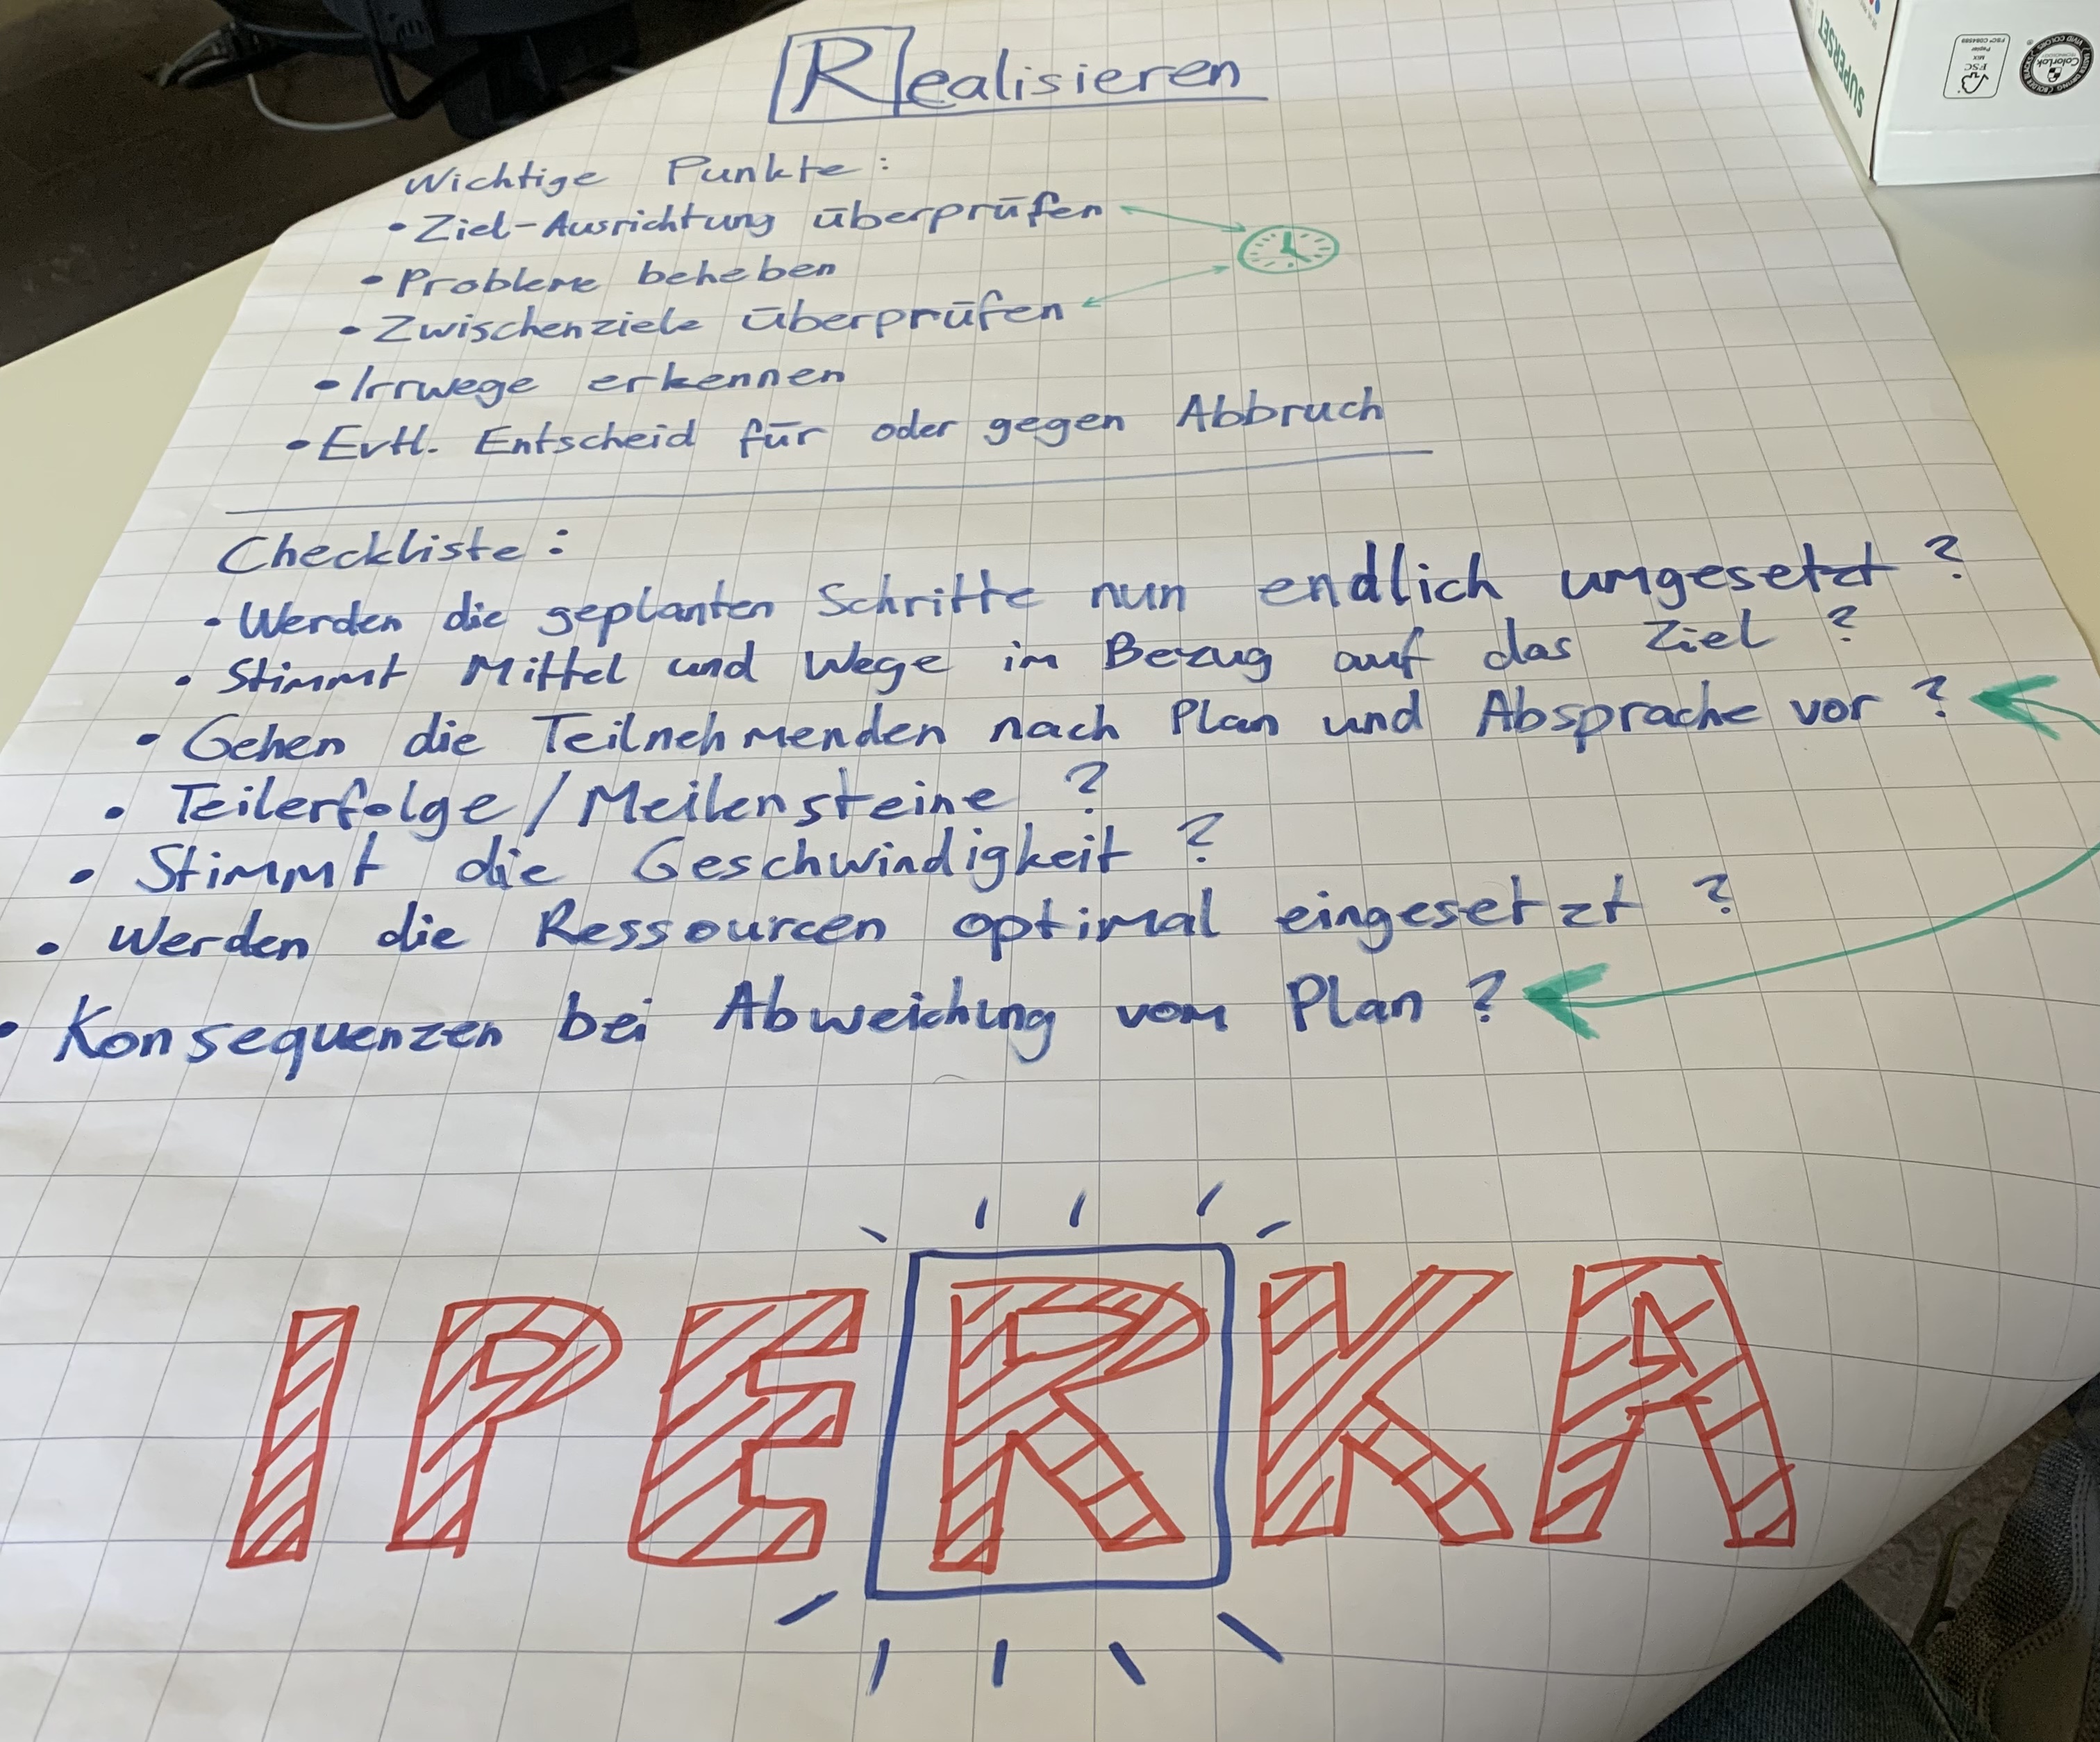 Realisieren
Wichtige Punkte:
• Ziel-Ausrichtung überprüfen
• Probleme beheben
• Zwischenziele überprüfen
• Irrwege erkennen
• Evtl. Entscheid für oder gegen Abbruch
Checkliste:
• Werden die geplanten Schritte nun endlich umgesetzt?
• Stimmt Mittel und Wege im Bezug auf das Ziel?
• Gehen die Teilnehmenden nach Plan und Absprache vor?
• Teilerfolge/Meilensteine?
• Stimmt die Geschwindigkeit?
• Werden die Ressourcen optimal eingesetzt?
• Konsequenzen bei Abweichung vom Plan?
IPERKA
SUPERSET
FSC
MIX
Papier
ColorLok